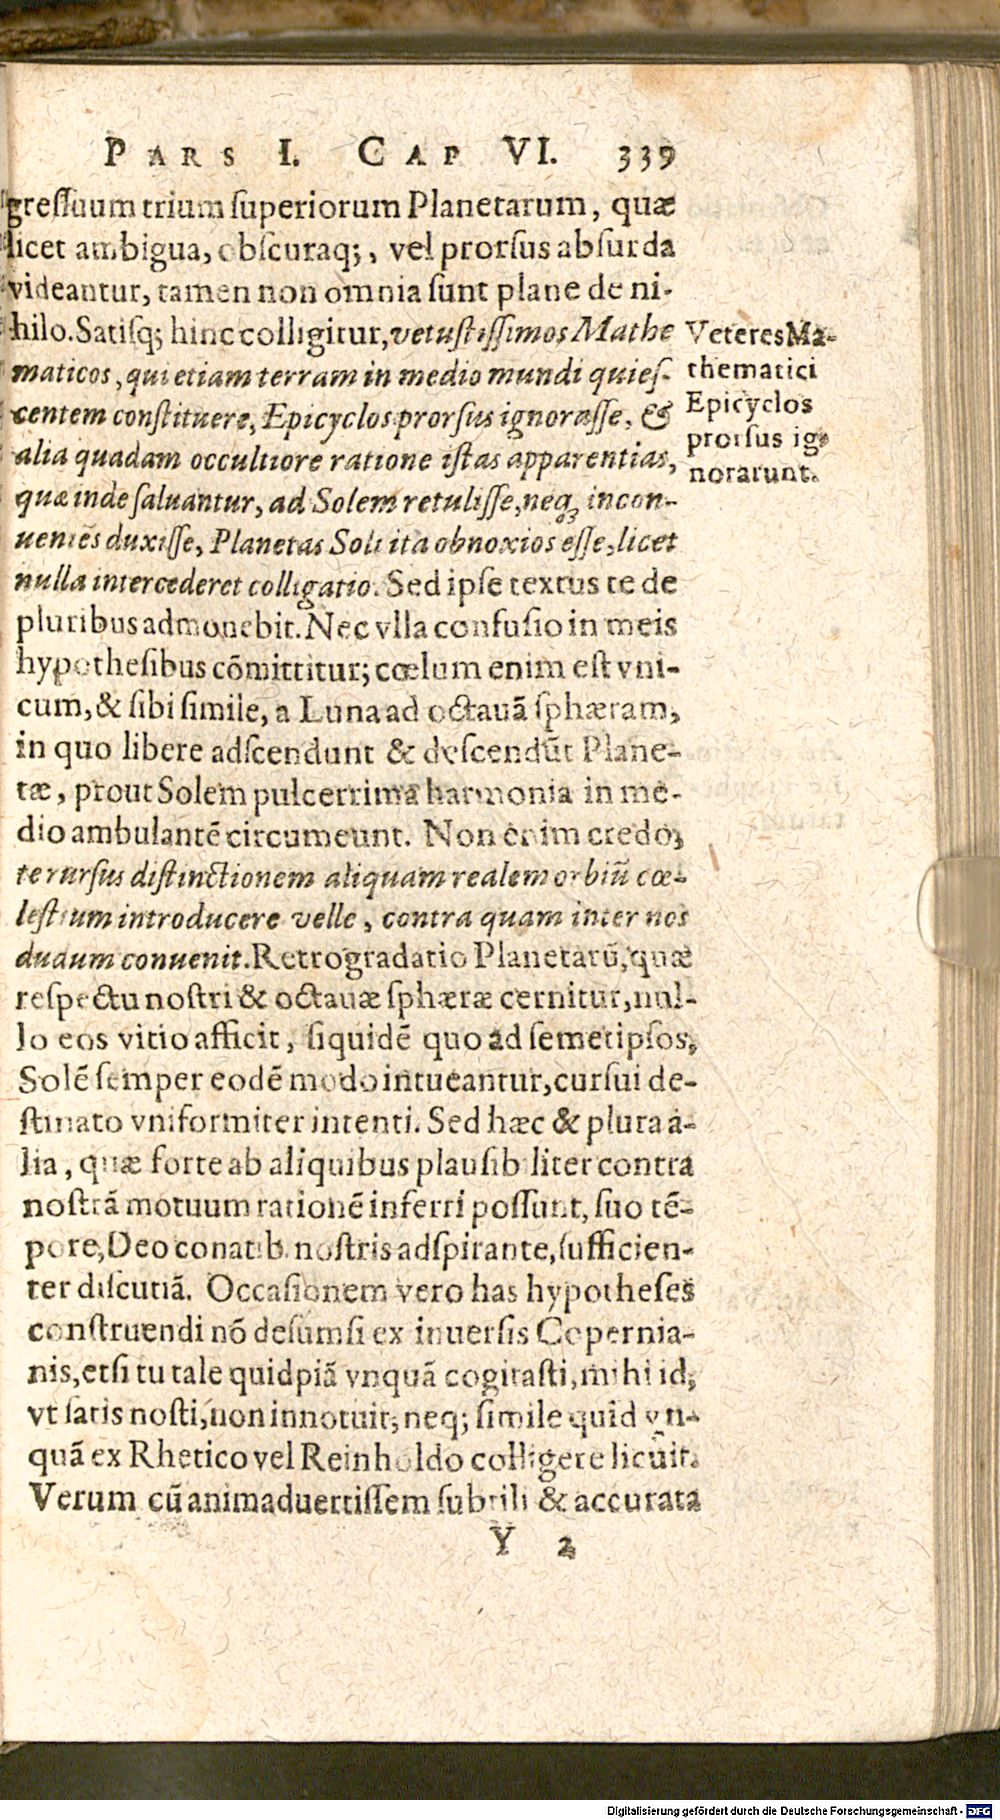 PARS I. CAP VI. 339
greſſuum trium ſuperiorum Planetarum, quæ
licet ambigua, obſcuraq;, vel prorſus abſurda
videantur, tamen non omnia ſunt plane de ni-
hilo. Satiſq; hinc colligitur, vetuſtiſſimos Mathe
maticos, qui etiam terram in medio mundi quieſ-
centem conſtituere, Epicyclos prorſus ignoraſſe, &
alia quadam occultiore ratione iſtas apparentias,
quæ inde ſaluantur, ad Solem retuliſſe, neq; incon-
ueniēs duxiſſe, Planetas Soli ita obnoxios eſſe, licet
nulla intercederet colligatio. Sed ipſe textus te de
pluribus admonebit. Nec vlla confuſio in meis
hypotheſibus cōmittitur; cœlum enim eſt vni-
cum, & ſibi ſimile, a Luna ad octauā ſphæram,
in quo libere adſcendunt & deſcendūt Plane-
tæ, prout Solem pulcerrima harmonia in me-
dio ambulantē circumeunt. Non enim credo,
te rurſus diſtinctionem aliquam realem orbiū cœ-
leſtium introducere velle, contra quam inter nos
dudum conuenit. Retrogradatio Planetarū, quæ
reſpectu noſtri & octauæ ſphæræ cernitur, nul-
lo eos vitio afficit, ſiquidē quo ad ſemetipſos,
Solē ſemper eodē modo intueantur, curſui de-
ſtinato vniformiter intenti. Sed hæc & plura a-
lia, quæ forte ab aliquibus plauſibiliter contra
noſtrā motuum rationē inferri poſſunt, ſuo tē-
pore, Deo conatib. noſtris adſpirante, ſufficien-
ter diſcutiā. Occaſionem vero has hypotheſes
conſtruendi nō deſumſi ex inuerſis Copernia-
nis, etſi tu tale quidpiā vnquā cogitaſti, mihi id,
vt ſatis noſti, non innotuit; neq; ſimile quid vn-
quā ex Rhetico vel Reinholdo colligere licuit.
Verum cū animaduertiſſem ſubtili & accurata
Y 2
Veteres Ma-
thematici
Epicyclos
prorſus ig-
norarunt.
Digitalisierung gefördert durch die Deutsche Forschungsgemeinschaft - DFG